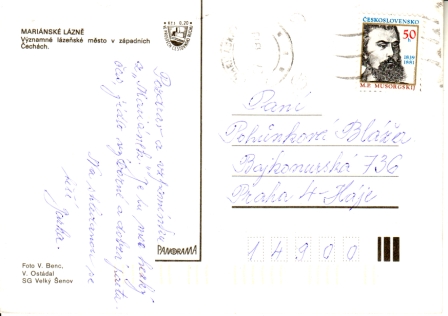 MARIÁNSKÉ LÁZNĚ
Významné lázeňské město v západních
Čechách.
Pozdrav a vzpomínku
z „Mariánek". Je tu moc hezky
a dobrá parta.
Na shledanou se
těší Jarka.
Foto V. Benc,
V. Ostádal
SG Velký Šenov
PANORAMA
ČESKOSLOVENSKO
50 h
1839
1881
M. P. MUSORGSKIJ
Paní
Pohůnková Blaža
Bajkonurská 736
Praha 4-Háje
14900